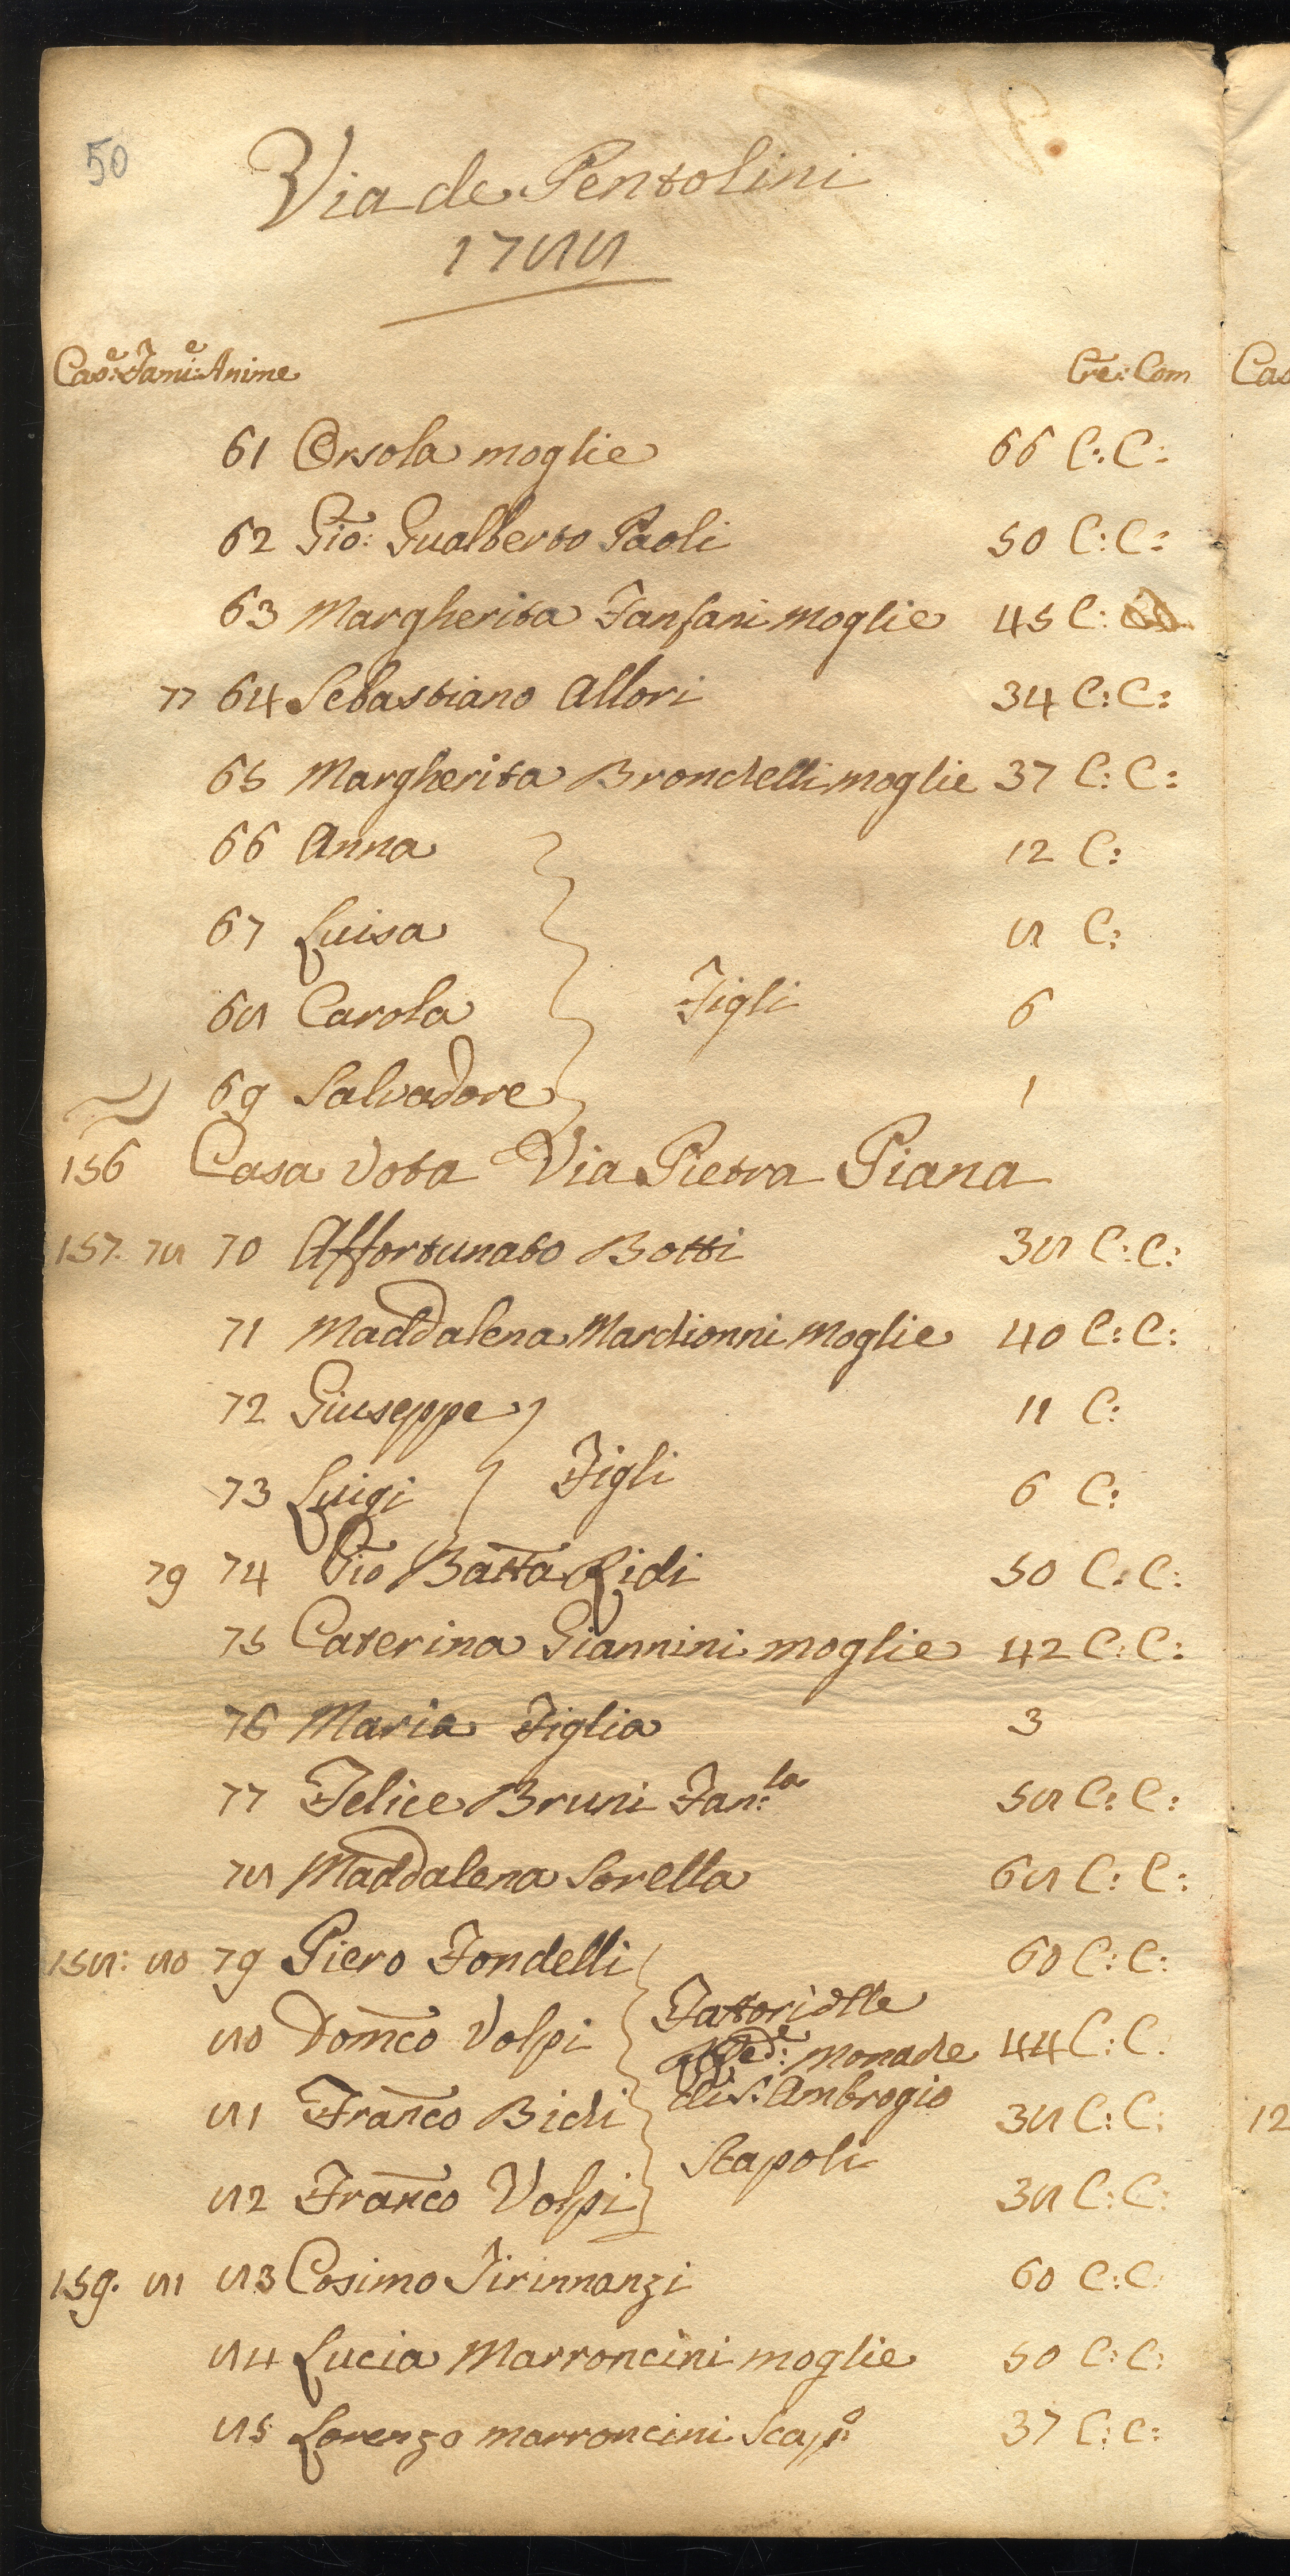 50
Via de Pentolini
1788
Cas:e Fami:e Anime Cre: Com
61 Orsola moglie 66 C: C:
62 Gio: Gualberto Paoli 50 C: C:
63 Margherita Fanfani Moglie 45 C:
77 64 Sebastiano Allori 34 C: C:
65 Margherita Brondelli moglie 37 C: C:
66 Anna 12 C:
67 Luisa 8 C:
68 Carola Figli 6
69 Salvadore 1
156 Casa Vota Via Pietra Piana
157. 78 70 Affortunato Botti 38 C: C:
71 Maddalena Mardionni Moglie 40 C: C:
72 Giuseppe 11 C:
73 Luigi Figli 6 C:
79 74 Gio Batta Ridi 50 C: C:
75 Caterina Giannini moglie 42 C: C:
76 Maria Figlia 3
77 Felice Bruni Fan:la 58 C: C:
78 Maddalena Sorella 68 C: C:
158: 80 79 Piero Fondelli 60 C: C:
80 Domco Volpi Fattori dlle 44 C: C.
Rede: Monache
81 Franco Bidi di S. Ambrogio 38 C: C:
Scapoli
82 Franco Volpi 38 C: C:
159. 81 83 Cosimo Tirinnanzi 60 C: C:
84 Lucia Marroncini moglie 50 C: C:
85 Lorenzo marroncini Scapo 37 C: C:
Cas
12